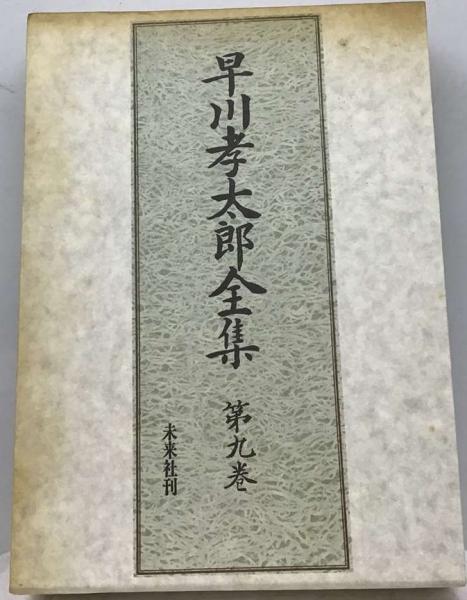 早川孝太郎全集 第九巻
未来社刊